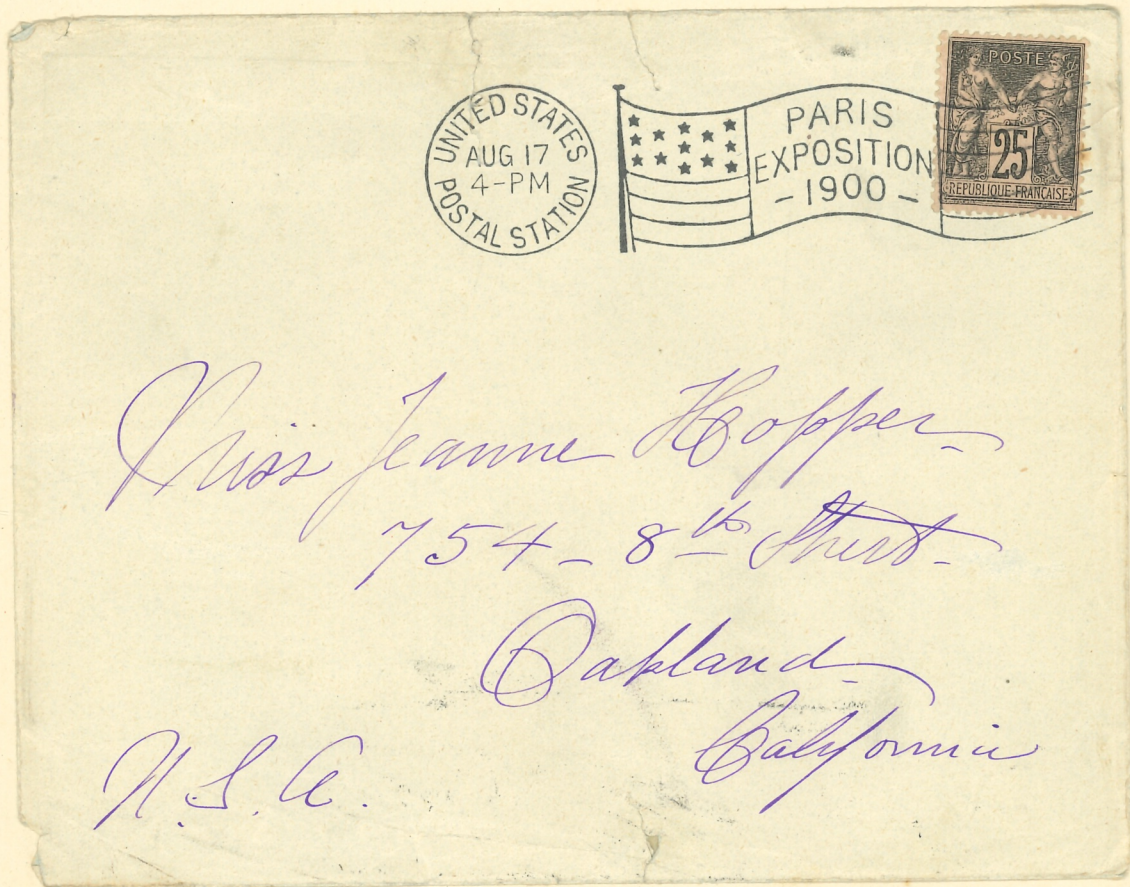 UNITED STATES
AUG 17
4-PM
POSTAL STATION
PARIS
EXPOSITION
- 1900 -
POSTE
25
REPUBLIQUE FRANCAISE
Miss Jeanne Hopper
754 - 8th Street -
Oakland
California
U. S. A.